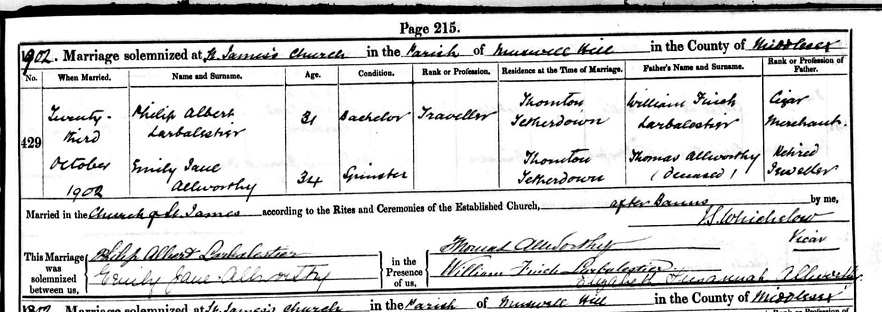 Page 215.
1902. Marriage solemnized at St. James's Church in the Parish of Muswell Hill in the County of Middlesex
No. When Married. Name and Surname. Age. Condition. Rank or Profession. Residence at the Time of Marriage. Father's Name and Surname. Rank or Profession of Father.
429 Twenty-third October 1902
Philip Albert Larbalestier 31 Bachelor Traveller Thornton Tetherdown William Finch Larbalestier Cigar Merchant.
Emily Jane Allworthy 34 Spinster Thornton Tetherdown Thomas Allworthy (Deceased) Retired Jeweller
Married in the Church of St. James according to the Rites and Ceremonies of the Established Church, after Banns by me,
Vicar
This Marriage was solemnized between us, Philip Albert Larbalestier
Emily Jane Allworthy
in the Presence of us, Thomas Allworthy
William Finch Larbalestier Elizabeth Susannah Allworthy
1902. Marriage solemnized at St. James's Church in the Parish of Muswell Hill in the County of Middlesex
Rank or Profession of